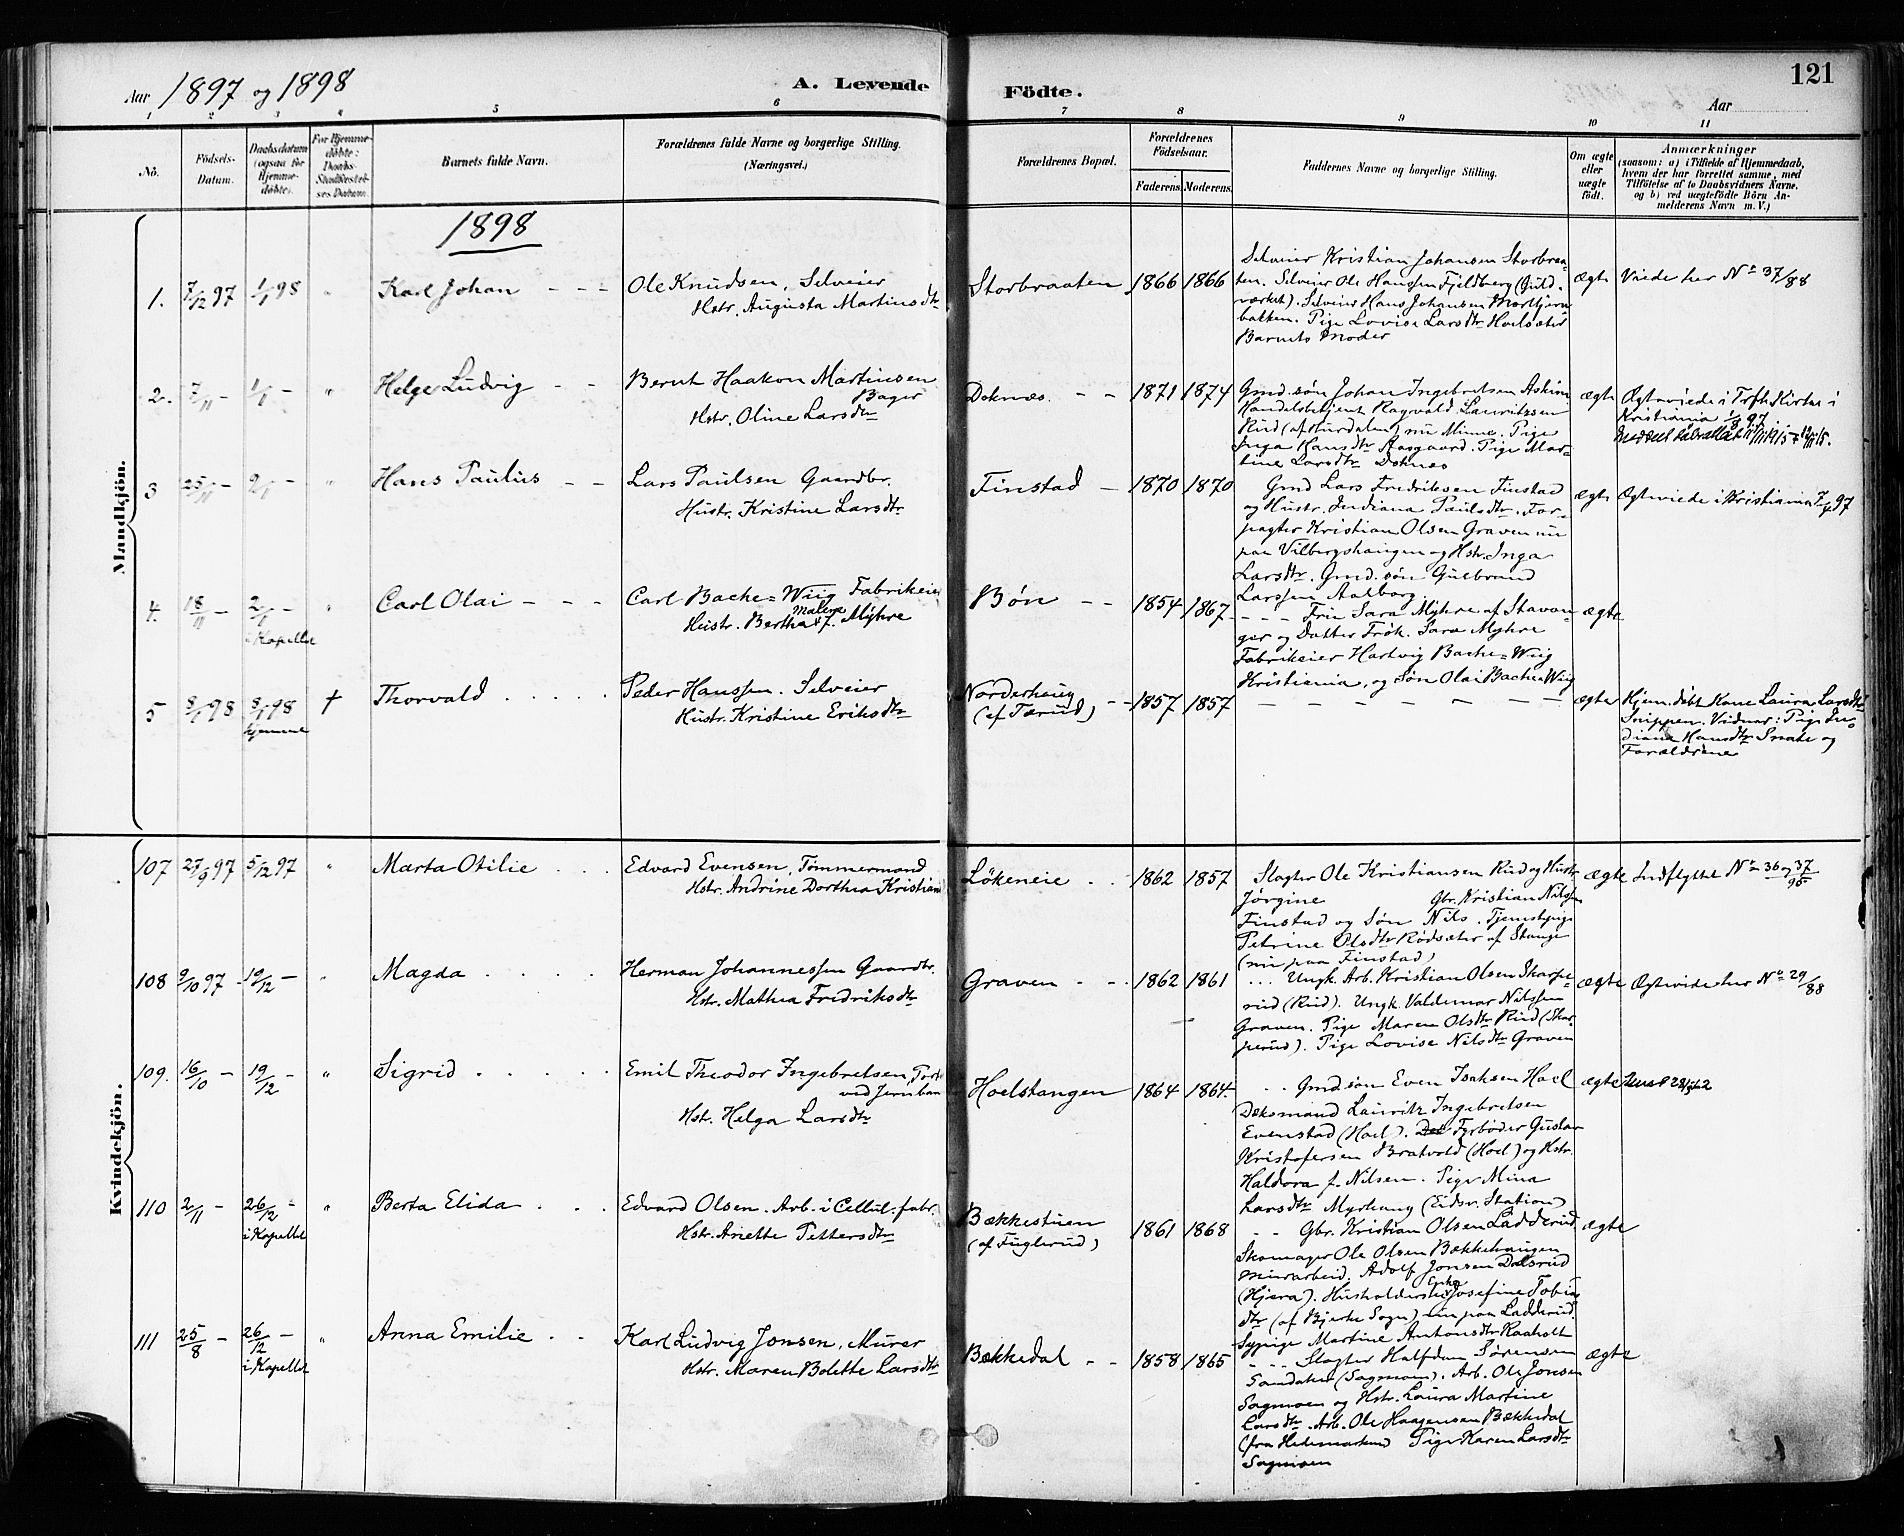 Aar 1897 og 1898
A. Levende Födte.
121
Aar
1 2 3 4 5 6 7 8 9 10 11
No.
Födsels-Datum.
Daabsdatum (ogsaa for Hjemmedöbte).
For Hjemmedöbte: Daabs Stadfæstelses Datum.
Barnets fulde Navn.
Forældrenes fulde Navne og borgerlige Stilling. (Næringsvei.)
Forældrenes Bopæl.
Forældrenes Födselsaar.
Faderens. Moderens.
Faddernes Navne og borgerlige Stilling.
Om ægte eller uægte födt.
Anmærkninger
(saasom: a) i Tilfælde af Hjemmedaab,
hvem der har forrettet samme, med
Tilföielse af to Daabsvidners Navne.
og b) ved uægtefödte Börn An-
melderens Navn m. V.)
Mandkjön.
1898
1. 7/12 97 1/1 98 " Karl Johan - - -
Ole Knudsen, Selveier
Hstr. Augusta Martinsdtr
Storbraaten 1866 1866
Selveier Kristian Johansen Storbraa-
ten. Selveier Ole Hanssen Fjeldberg (Guld-
værket). Selveier Hans Johansen
bakken. Pige Lovise Larsdtr Hoelsæter
Barnets Moder
ægte Viede her No 37/88
2. 7/11 - 1/1 - " Helge Ludvig - -
Bernt Haakon Martinsen
Bager
Hstr. Oline Larsdtr
Doknæs. - - 1871 1874
Gmd.søn Johan Ingebretsen Askim
Handelsbetjent Ragvald Lauritzsen
Rud (af Hurdalen) nu Minne. Pige
Inga Hansdtr Aasgaard. Pige Mar-
tine Larsdtr Doknæs
ægte Ægteviede i Trefk Kirke i
Kristiania 1/8 97
3 25/11 - 2/1 - " Hans Paulus - -
Lars Paulsen Gaardbr.
Hustr. Kristine Larsdtr
Finstad - 1870 1870
Gmd Lars Fredriksen Finstad
og Hustr. Indiana Paulsdtr. For-
pagter Kristian Olsen Graven nu
paa Vilbergshaugen og Hstr. Inga
Larsdtr. Gmd.søn Gulbrand
Larssen Aalborg.
ægte Ægteviede i Kristiania 97
4. 18/11 - 2/1 - i Kapellet " Carl Olai - - -
Carl Bache-Wiig Fabrikeier
Hustr. Bertha Malena f. Myhre
Bøn - - 1854 1867
- - - Fru Sara Myhre af Stavan-
ger og Datter Frøk. Sara Myhre
Fabrikeier Hartvig Bache-Wiig
Kristiania, og Søn Olai Bache-Wiig
ægte
5 8/1 98 8/1 98 hjemme † Thorvald . . . . .
Peder Hanssen. Selveier
Hustr. Kristine Eriksdtr
Norderhaug - -
(af Tærud)
1857 1857 - - - - - - -
ægte Hjem.døbt Kone Laura Larsdtr
Snippen. Vidner: Pige In-
diana Hansdtr Snate og
Forældrene
Kvindekjön.
107 27/9 97 5/12 97 " Marta Otilie . . .
Edvard Evensen, Tømmermand
Hstr. Andrine Dorthea Kristians
Løkeneie . . 1862 1857
Slagter Ole Kristiansen Rud og Hustr.
Jørgine Gbr. Kristian Nilssen
Finstad og Søn Nils. Tjenestpige
Petrine Olsdtr Rødsæter af Stange
(nu paa Finstad)
ægte Indflyttet No 36 og 37/95
108 9/10 97 - 19/12 - " Magda . . . . .
Herman Johannessen Gaardbr.
Hstr. Mathea Fredriksdtr
Graven - - - 1862 1861
... Ungk. Arb. Kristian Olsen Skarpe-
rud (Rud). Ungk. Valdemar Nilssen
Graven. Pige Maren Olsdtr Rud (Skar-
perud). Pige Lovise Nilsdtr Graven
ægte Ægteviede her No 29/88
109. 16/10 - 19/12 - " Sigrid . . . . .
Emil Theodor Ingebretsen,
ved Jernban
Hstr. Helga Larsdtr
Hoelstangen 1864 1864.
. . Gmd.søn Even Isaksen Hoel
Dæksmand Lauritz Ingebretsen
Evenstad (Hoel). Fyrbøder Gustav
Kristofersen Bratvold (Hoel) og Hstr.
Haldora f. Nilsen. Pige Mina
Larsdtr Myrhaug (Eidsv. Station)
ægte
110 2/11 - 26/12 - i Kapellet " Berta Elida . . .
Edvard Olsen. Arb. i Cellul.fabr.
Hstr. Anette Pettersdtr
Bækkestuen
(af Fuglerud)
1861 1868
- - Gbr. Kristian Olsen Ladderud.
Skomager Ole Olsen Bækkehaugen
Murarbeid. Adolf Jonsen Dalsrud
(Hjera). Husholderske Enke Josefine Tobias
dtr (af Bjerke Sogn) nu paa Ladderud.
Sypige Martine Antonsdtr Raaholt
ægte
111 25/8 - 26/12 - i Kapellet " Anna Emilie . .
Karl Ludvig Jonsen, Murer
Hstr. Maren Bolette Larsdtr
Bækkedal - - 1858 1865
- - - Slagter Halfdan Sørensen
(Sagmoen). Arb. Ole Jonsen
Sagmoen og Hstr. Laura Martine
Larsdtr. Arb. Ole Haagensen Bækkedal
(fra Hedemarken) Pige Karen Larsdtr
Sagmoen
ægte